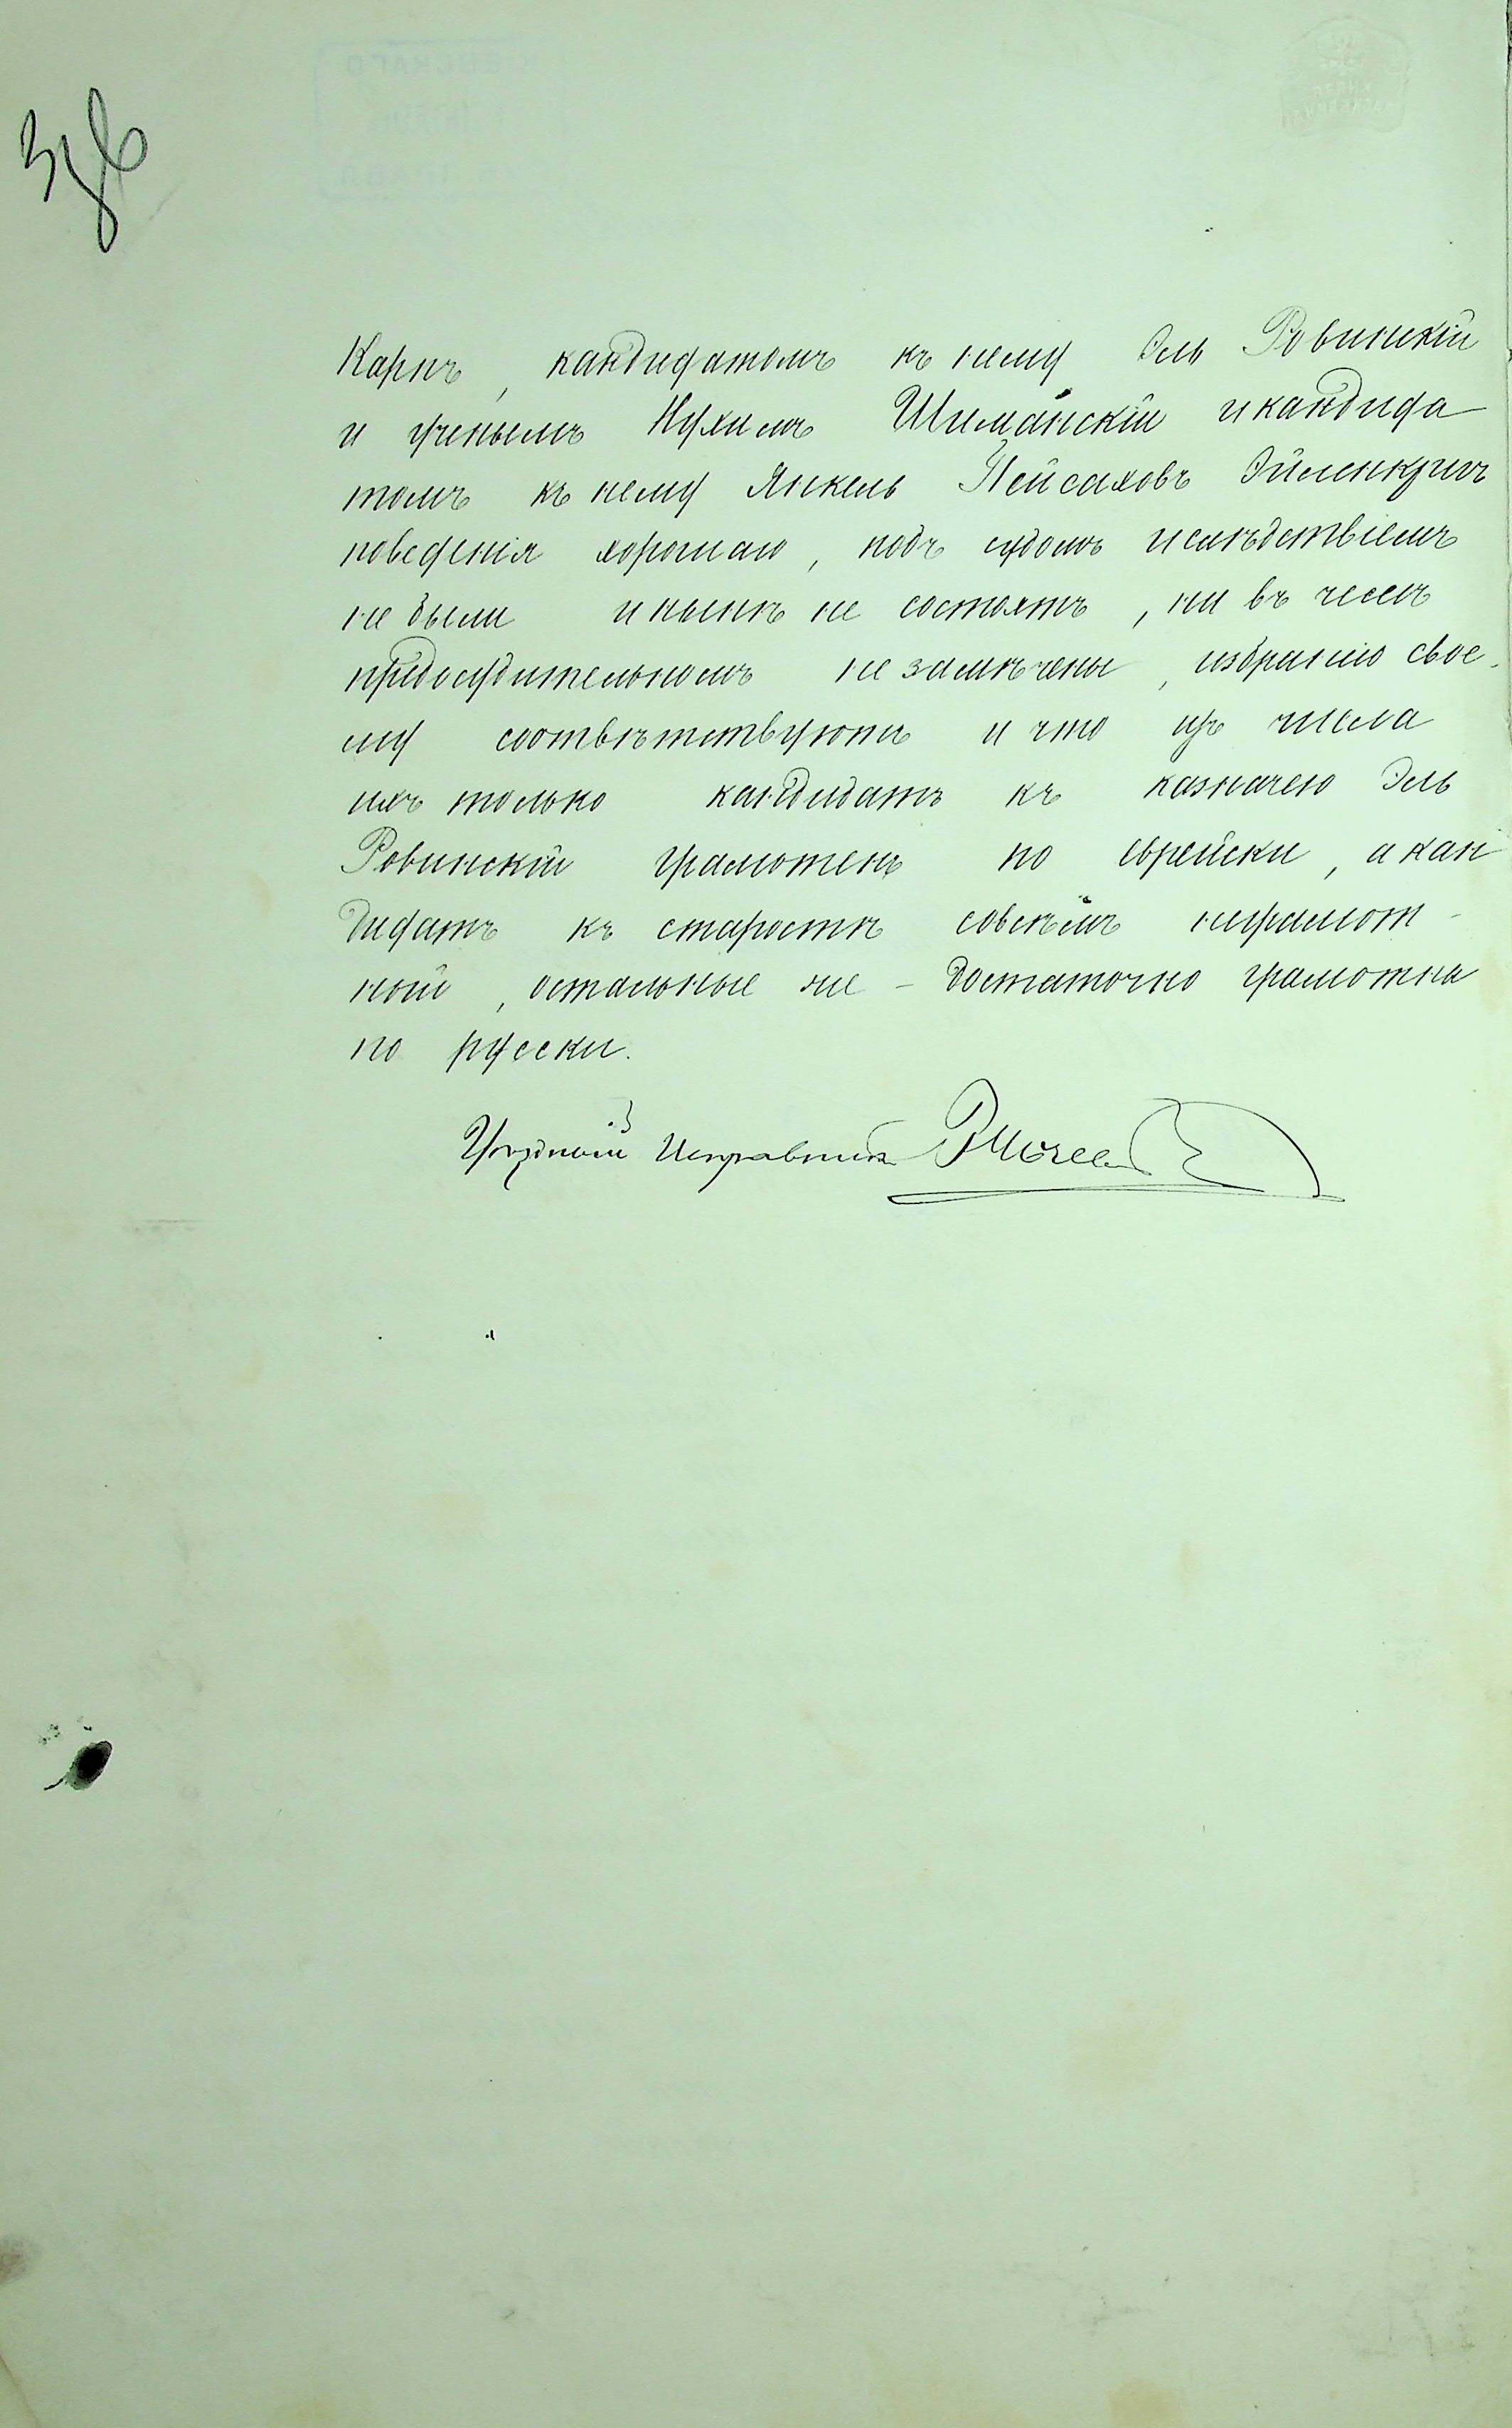 Карпъ, кандидатомъ къ нему Эль Ровинскій
и ученымъ Нухимъ Шиманскій и кандида
томъ къ нему Янкель Пейсаховъ
поведенія хорошаго, подъ судомъ и слѣдствіемъ
не были и нынѣ не состоятъ, ни въ чемъ
предосудительномъ не замѣчены, избранію свое
му соотвѣтствуютъ и что изъ числа
ихъ только кандидатъ къ казначею Эль
Ровинскій грамотенъ по еврейски, а кан
дидатъ къ старостѣ совсѣмъ неграмот-
ный, остальные же - достаточно грамотны
по русски.
Уѣздный Исправникъ